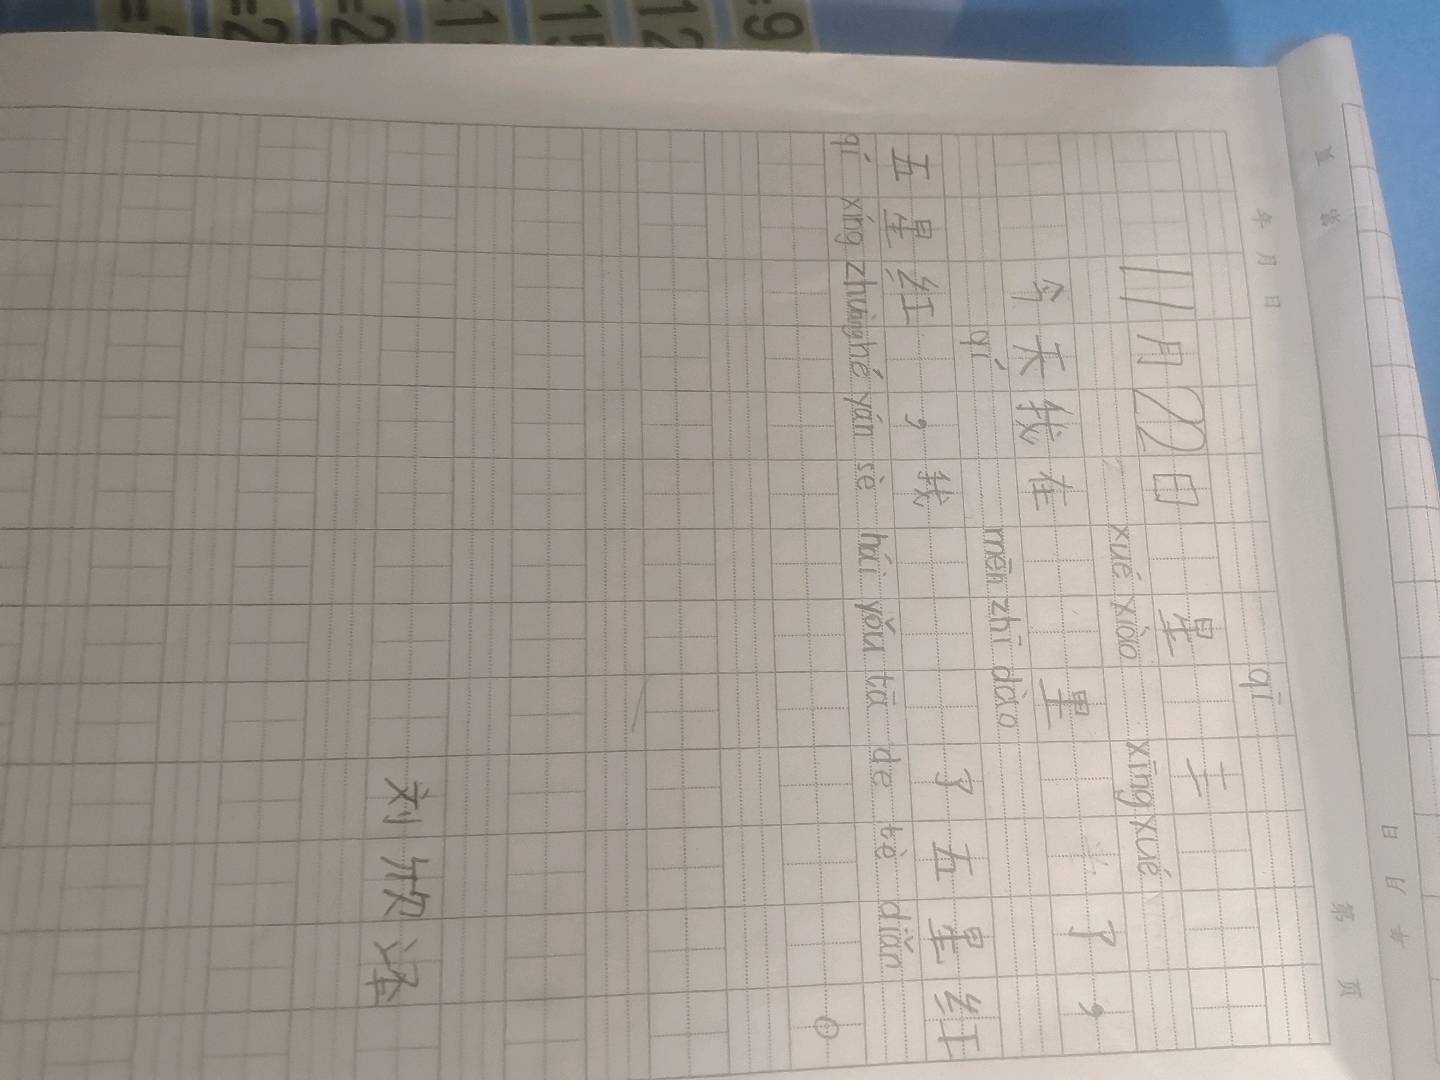 年 月 日 第 页
qī
11月22日 星 二
xué xiào xīng xué
今天我在 里 了，
qí mēn zhī dào
五星红 ，我 了五星红
qí xíng zhuàng hé yán sè hái yǒu tā de tè diǎn 。
刘 泽